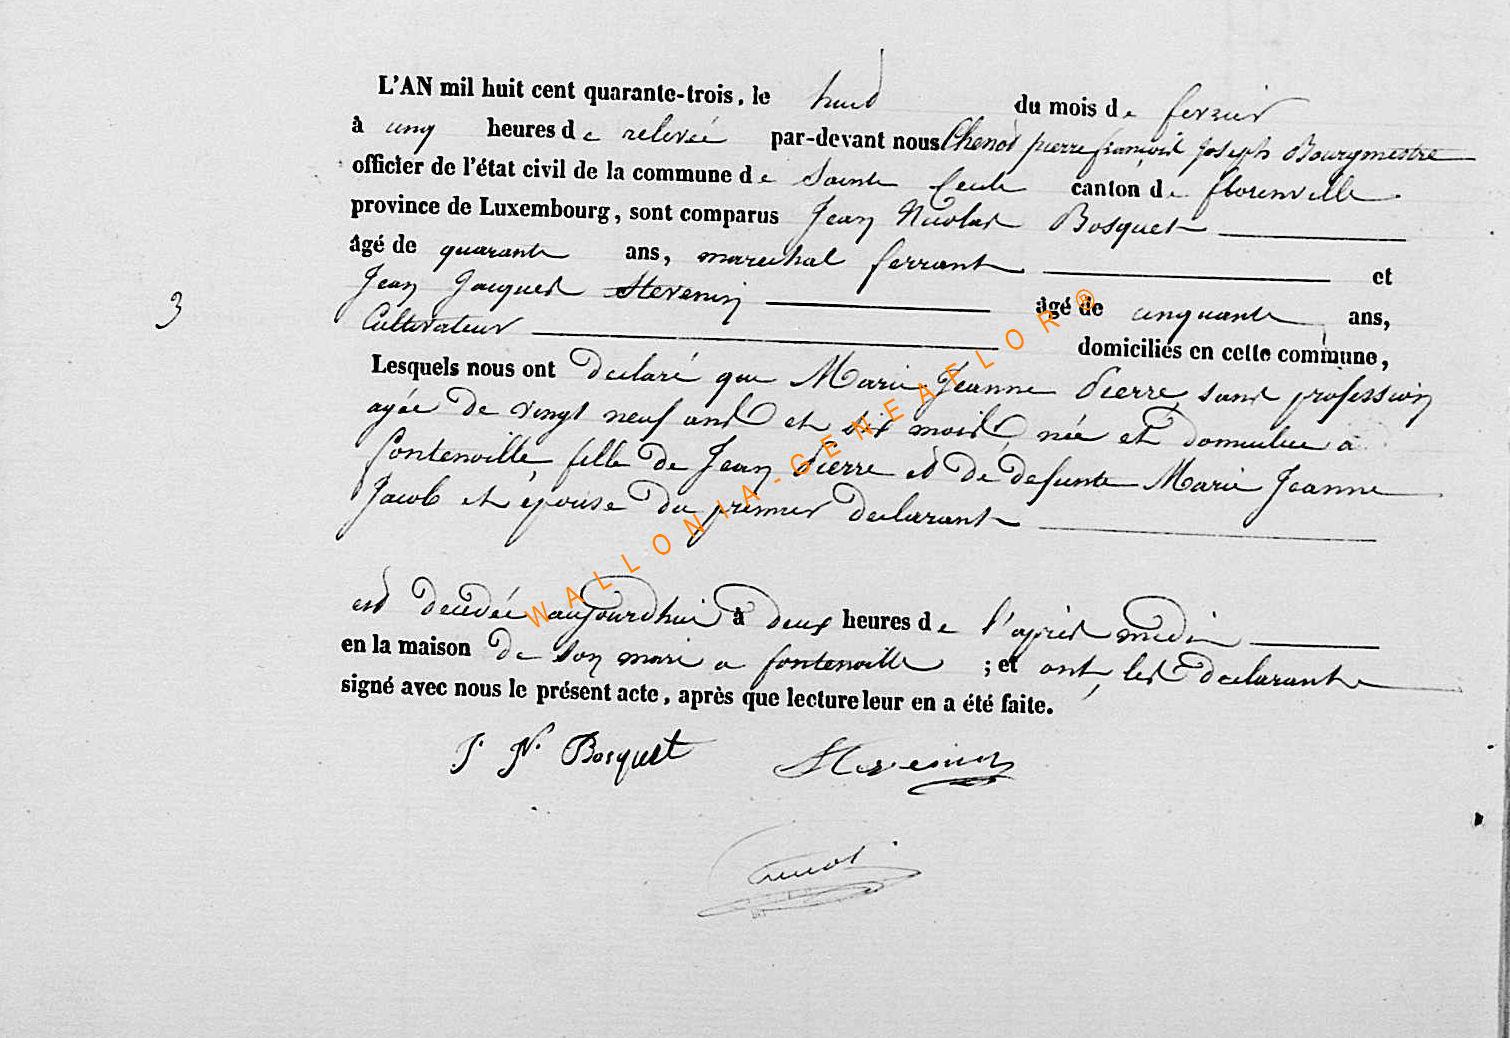 L'AN mil huit cent quarante-trois, le huit du mois de fevrier
à cinq heures de relevée par-devant nous Chenot pierre françois joseph Bourgmestre
officier de l'état civil de la commune de Sainte Cecile canton de florenville
province de Luxembourg, sont comparus Jean Nicolas Bosquet
âgé de quarante ans, marechal ferrant et
3
Jean Jacques Stevenin âgé de cinquante ans,
Cultivateur domiciliés en cette commune,
Lesquels nous ont declaré que Marie Jeanne Pierre, sans profession
agée de vingt neuf ans et six mois, née et domiciliée a
fontenoille, fille de Jean Pierre et de defunte Marie Jeanne
Jacob et épouse du premier declarant
est decedée aujourdhui à deux heures de l'après midi
en la maison de son mari a fontenoille ; et ont les declarants
signé avec nous le présent acte, après que lecture leur en a été faite.
J. N. Bosquet Stevenin
Chenot
WALLONIA-GENEAFLOR®